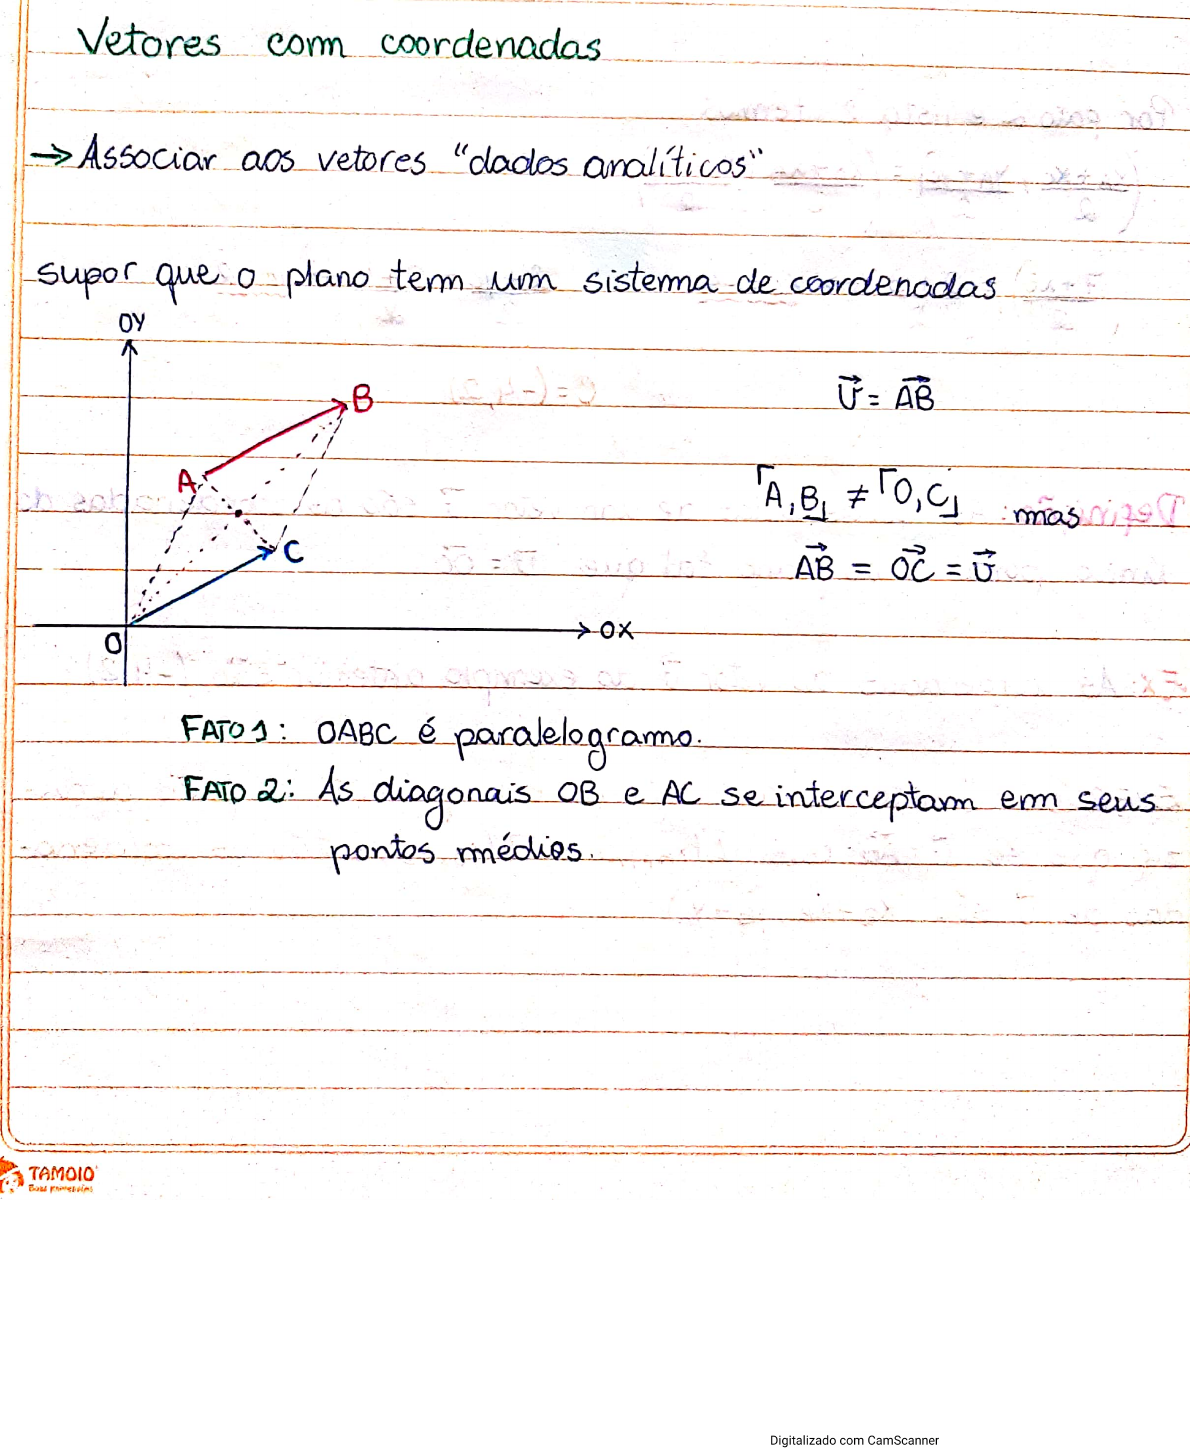 Vetores com coordenadas
→ Associar aos vetores "dados analíticos"
supor que o plano tem um sistema de coordenadas
OY
B
A
C
O
OX
V⃗ = A⃗B⃗
⌈A,B⌋ ≠ ⌈O,C⌋ mas
A⃗B⃗ = O⃗C⃗ = V⃗
FATO 1: OABC é paralelogramo.
FATO 2: As diagonais OB e AC se interceptam em seus
pontos médios.
TAMOIO
Digitalizado com CamScanner